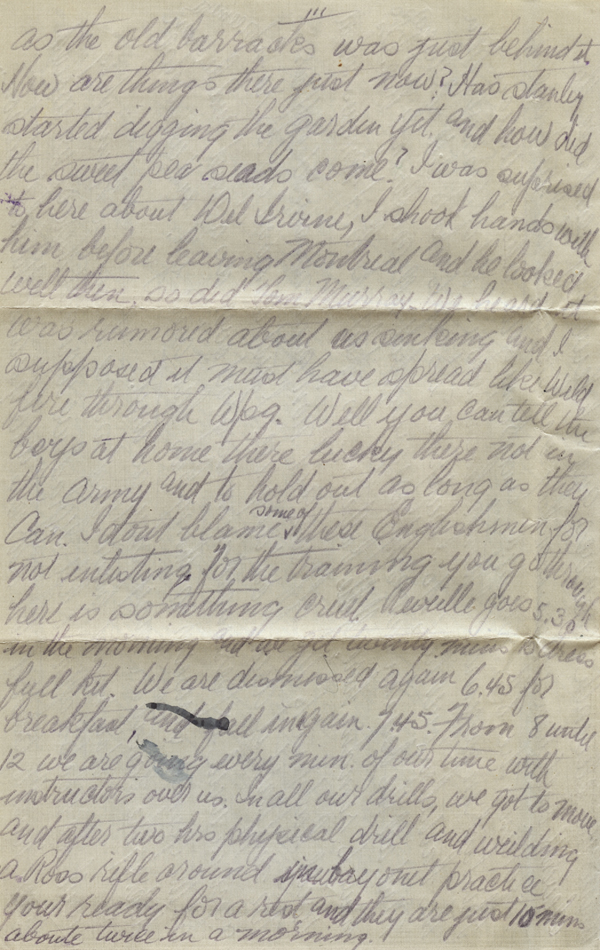 III
as the old barracks was just behind it
How are things there just now? Has stanley
started digging the garden yet. and how did
the sweet pea seads come? I was suprised
to, here about Wel Irvine, I shook hands with
him before leaving Montreal and he looked
well then. so did Murray. We heard it
was rumored about us sinking and I
supposed it must have spread like wild
fire through Wpg. Well you can tell the
boys at home there lucky there not in
the army and to hold out as long as they
Can. I dont blame some of these Englishmen for
not enlisting, for the training you go through
here is something cruel. Reveille goes 5.30
in the morning and we get twenty mins to dress
full kit. We are dismissed again 6.45 for
breakfast, and fall in again 7.45. From 8 until
12 we are going every min. of our time with
instructors over us. In all our drills, we got to move,
and after two hrs physical drill and weilding
a Ross rifle around in bayonet practice
your ready for a rest and they are just 15 mins
aboute twice in a morning.